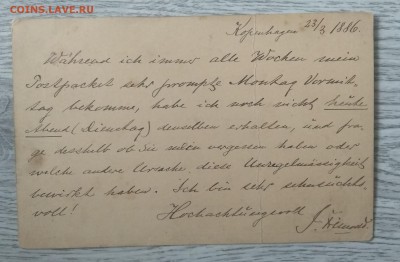 COINS.LAVE.RU
Kopenhagen 23/3 1886.
Während ich immer alle Wochen mein
Postpacket sehr prompte Montag Vormit-
tag bekomme, habe ich noch nicht heute
Abend (Dienstag) denselben erhalten, und fra-
ge deshalb ob Sie mein vergessen haben oder
welche andere Ursache diese Unregelmässigkeit
bewirkt haben. Ich bin sehr sehnsuchts-
voll!
Hochachtungsvoll